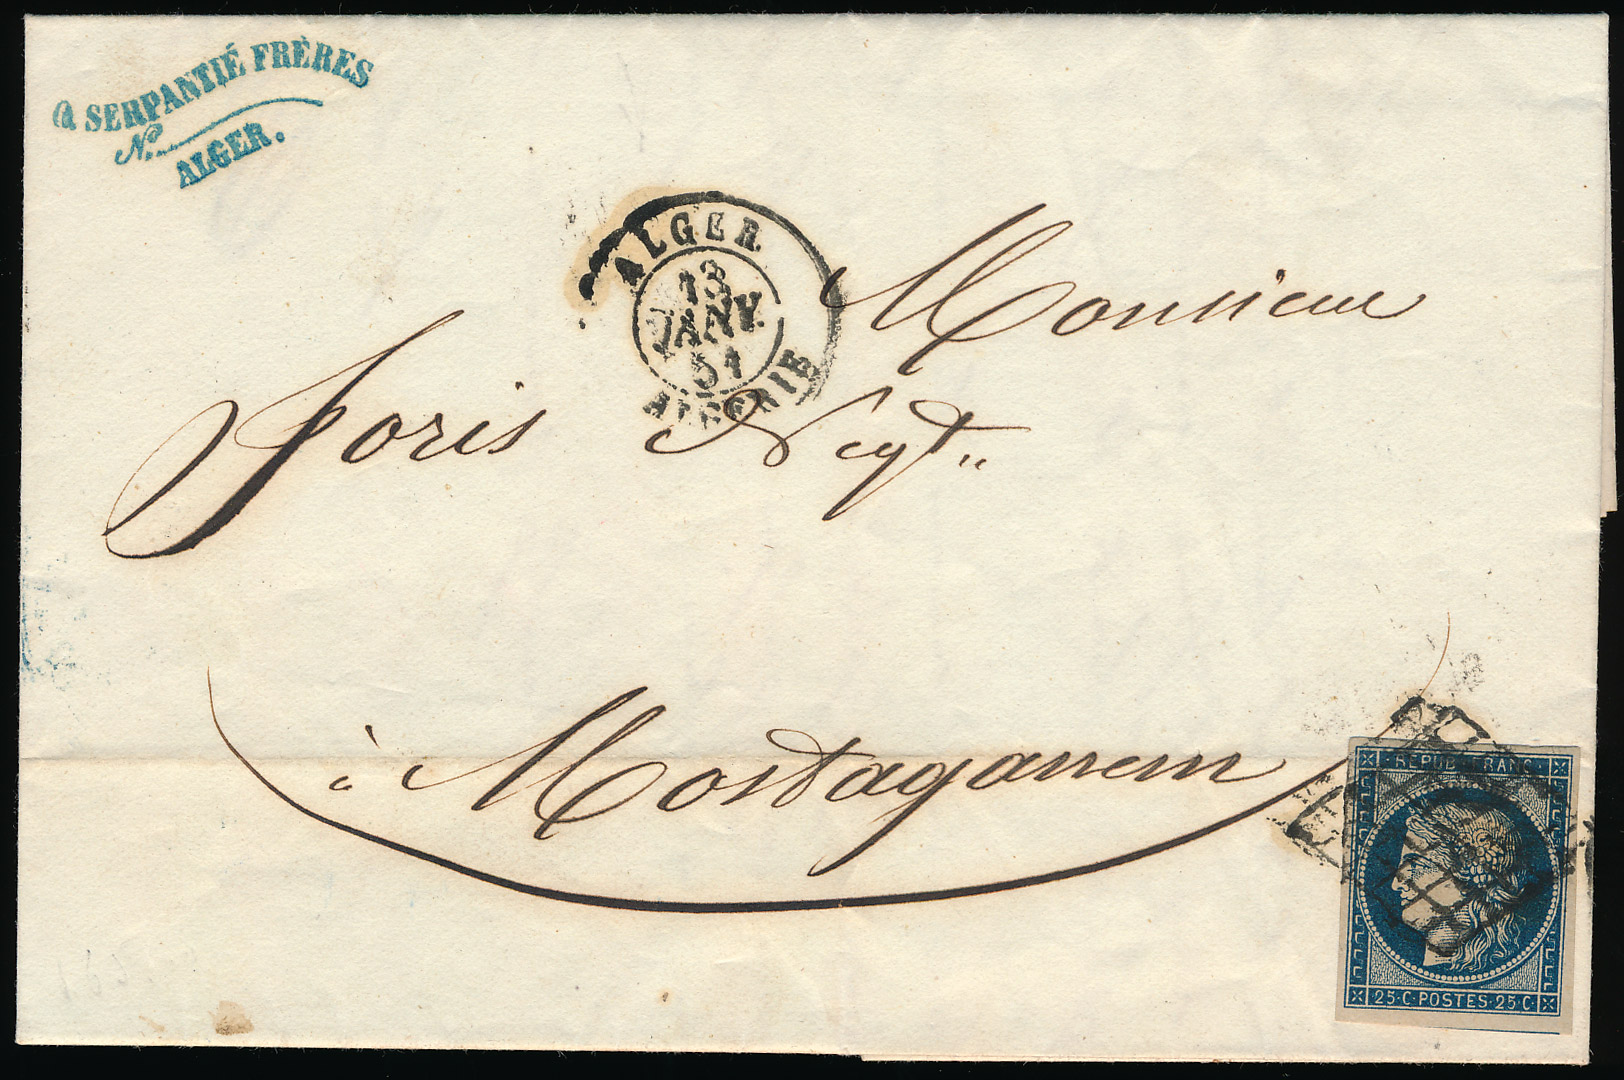 SERPANTIÉ FRÈRES
No.
ALGER.
ALGER
13
JANV.
51
ALGÉRIE
Monsieur
Joris Negt.
à Mostaganem
REPUB FRANC
25·C·POSTES·25·C